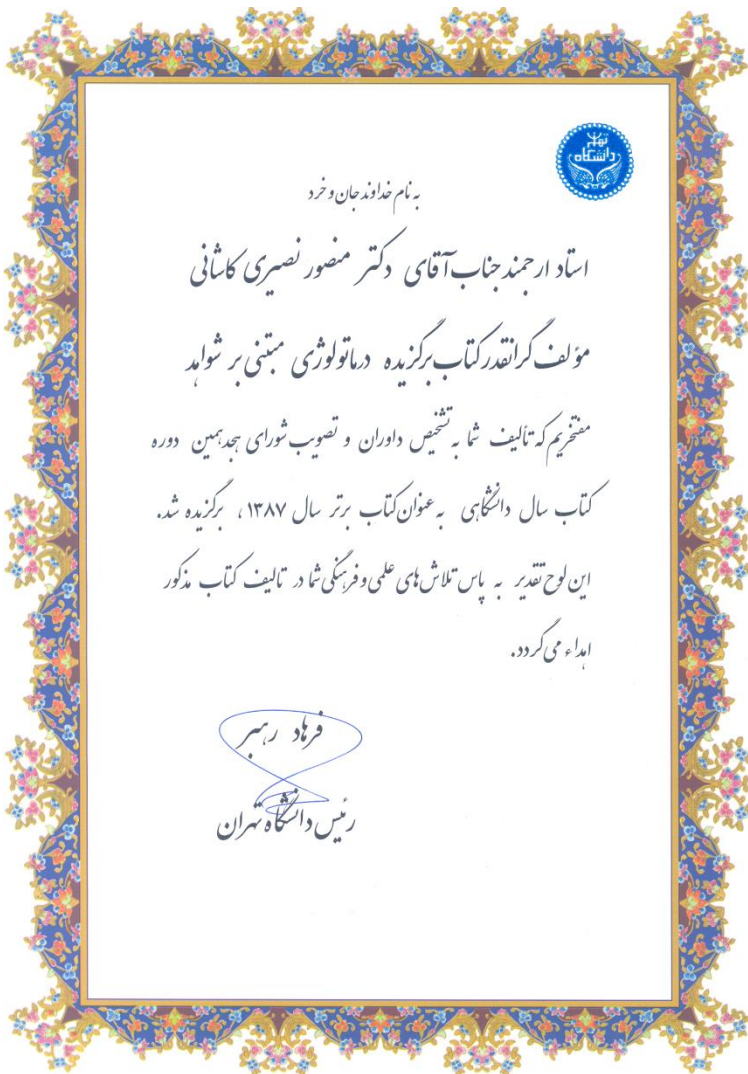 دانشگاه تهران
به نام خداوند جان و خرد
استاد ارجمند جناب آقای دکتر منصور نصیری کاشانی
مؤلف گرانقدر کتاب برگزیده درماتولوژی مبتنی بر شواهد
مفتخریم که تألیف شما به تشخیص داوران و تصویب شورای هجدهمین دوره
کتاب سال دانشگاهی به عنوان کتاب برتر سال ۱۳۸۷، برگزیده شد.
این لوح تقدیر به پاس تلاش های علمی و فرهنگی شما در تالیف کتاب مذکور
اهداء می گردد.
فرهاد رهبر
رئیس دانشگاه تهران